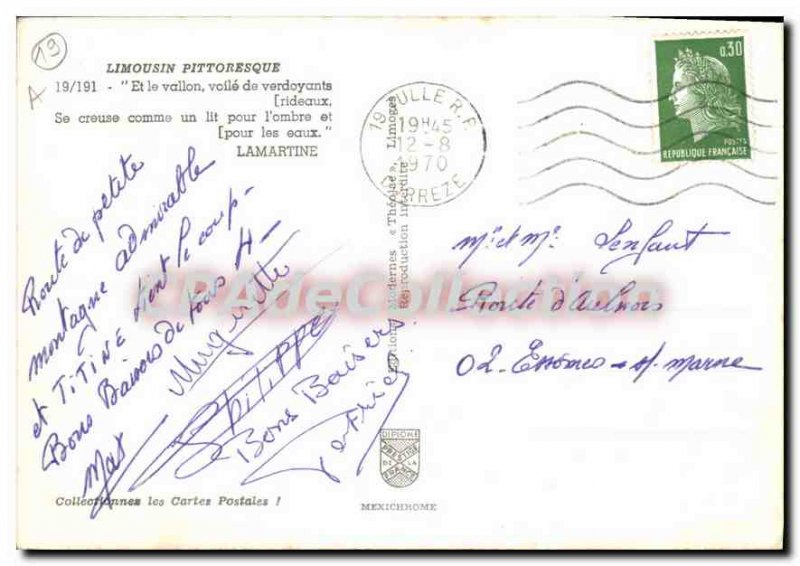 19
A
LIMOUSIN PITTORESQUE
19/191 - "Et le vallon, voilé de verdoyants
[rideaux,
Se creuse comme un lit pour l'ombre et
[pour les eaux."
LAMARTINE
Route de petite
montagne admirable
et TITINE tient le coup -
Bons Baisers de tous 4 -
Muguette
Max
PHILIPPE
Bons Baisers
Patrice
Collectionnez les Cartes Postales !
Editions Modernes, « Théojac », Limoges
Reproduction interdite
19 TULLE R.P.
19H45
12-8
1970
CORREZE
0,30
POSTES
REPUBLIQUE FRANÇAISE
Mr et Me Lenfant
Route d'Aulnois
02. Essômes-s/-Marne
DIPLOME
PRESTIGE
DE LA
FRANCE
MEXICHROME
CPAdeCollection